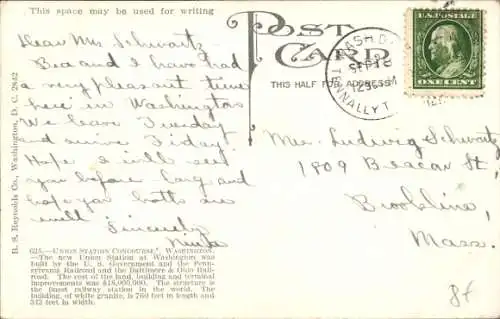 This space may be used for writing
POST CARD
THIS HALF FOR ADDRESS
U.S. POSTAGE
ONE CENT
WASH. D.C.
SEP 18
12
TENNALLYT
Dear Mr. Schwartz
Bea and I have had
a very pleasant time
here in Washington
We leave Tuesday
and arrive Friday.
Hope I will see
you before long and
hope you both are
well Sincerely
Mr. Ludwig Schwartz
1809 Beacon St,
Brookline,
Mass.
B. S. Reynolds Co., Washington, D. C. 2842
625.—UNION STATION CONCOURSE, WASHINGTON.
—The new Union Station at Washington was
built by the U. S. Government and the Penn-
sylvania Railroad and the Baltimore & Ohio Rail-
road. The cost of the land, building and terminal
improvements was $18,000,000. The structure is
the finest railway station in the world. The
building, of white granite, is 760 feet in length and
343 feet in width.